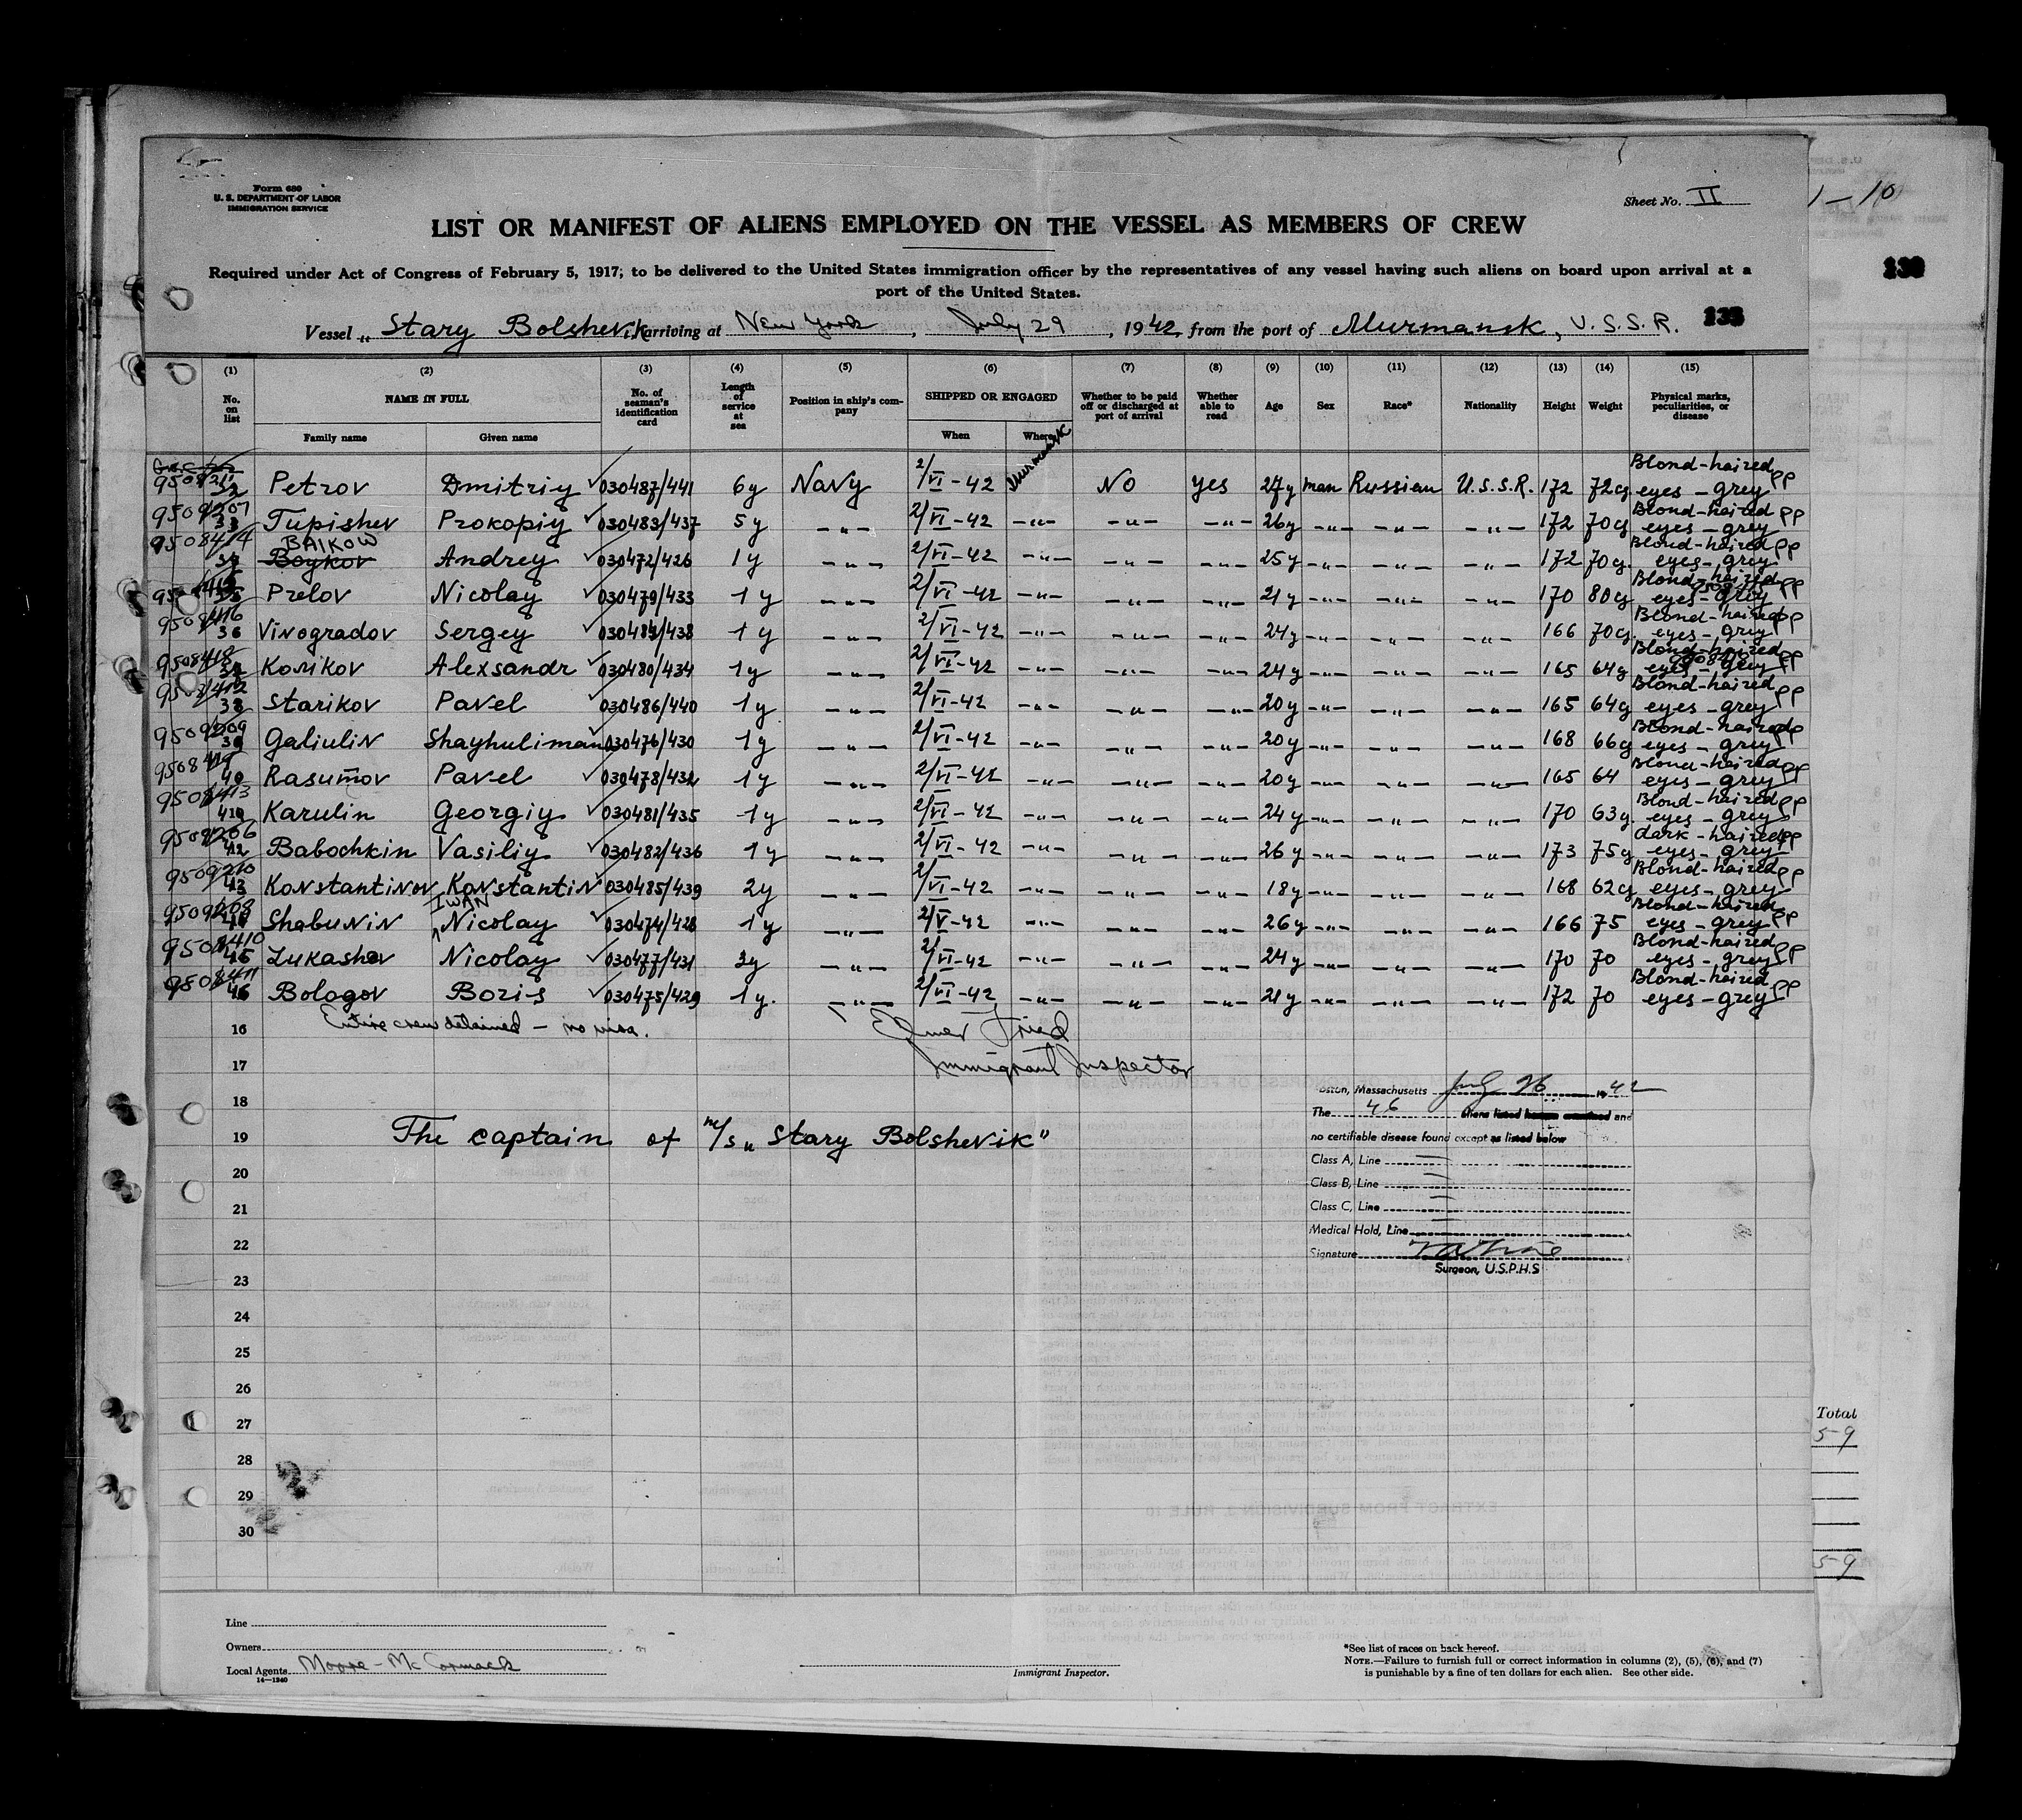 Form 680
U. S. DEPARTMENT OF LABOR
IMMIGRATION SERVICE
Sheet No. II
1-10
LIST OR MANIFEST OF ALIENS EMPLOYED ON THE VESSEL AS MEMBERS OF CREW
Required under Act of Congress of February 5, 1917; to be delivered to the United States immigration officer by the representatives of any vessel having such aliens on board upon arrival at a
port of the United States.
Vessel „ Stary Bolshevik arriving at New York, July 29, 1942, from the port of Murmansk, U.S.S.R.
(1) (2) (3) (4) (5) (6) (7) (8) (9) (10) (11) (12) (13) (14) (15)
No. on list NAME IN FULL Family name Given name No. of seaman's identification card Length of service at sea Position in ship's company SHIPPED OR ENGAGED When Where Whether to be paid off or discharged at port of arrival Whether able to read Age Sex Race* Nationality Height Weight Physical marks, peculiarities, or disease
32 Petrov Dmitriy 030487/441 6y Navy 2/VI-42 Murmansk No yes 27y man Russian U.S.S.R. 172 72 Blond-haired eyes - grey
33 Tupishev Prokopiy 030483/437 5y -„- 2/VI-42 -„- -„- -„- 26y -„- -„- -„- 172 70 Blond-haired eyes - grey
BAIKOW
Boykov Andrey 030472/426 1y -„- 2/VI-42 -„- -„- -„- 25y -„- -„- -„- 172 70 Blond-haired eyes - grey
35 Prelov Nicolay 030479/433 1y -„- 2/VI-42 -„- -„- -„- 21y -„- -„- -„- 170 80 Blond-haired eyes - grey
36 Vinogradov Sergey 1y -„- 2/VI-42 -„- -„- -„- 24y -„- -„- -„- 166 70 Blond-haired eyes - grey
Kosikov Alexsandr 030480/434 1y -„- 2/VI-42 -„- -„- -„- 24y -„- -„- -„- 165 64 Blond-haired eyes - grey
38 Starikov Pavel 030486/440 1y -„- 2/VI-42 -„- -„- -„- 20y -„- -„- -„- 165 64 Blond-haired eyes - grey
39 Galiulin Shayhuliman 030476/430 1y -„- 2/VI-42 -„- -„- -„- 20y -„- -„- -„- 168 66 Blond-haired eyes - grey
40 Rasumov Pavel 030478/432 1y -„- 2/VI-42 -„- -„- -„- 20y -„- -„- -„- 165 64 Blond-haired eyes - grey
41 Karulin Georgiy 030481/435 1y -„- 2/VI-42 -„- -„- -„- 24y -„- -„- -„- 170 63 Blond-haired eyes - grey
42 Babochkin Vasiliy 030482/436 1y -„- 2/VI-42 -„- -„- -„- 26y -„- -„- -„- 173 75 dark-haired eyes - grey
43 Konstantinov Konstantin 030485/439 2y -„- 2/VI-42 -„- -„- -„- 18y -„- -„- -„- 168 62 Blond-haired eyes - grey
IWAN
44 Shabunin Nicolay 030474/428 1y -„- 2/V-42 -„- -„- -„- 26y -„- -„- -„- 166 75 Blond-haired eyes - grey
45 Lukashov Nicolay 030477/431 2y -„- 2/VI-42 -„- -„- -„- 24y -„- -„- -„- 170 70 Blond-haired eyes - grey
46 Bologov Boris 030475/429 1y. -„- 2/VI-42 -„- -„- -„- 21y -„- -„- -„- 172 70 Blond-haired eyes - grey
16 Entire crew detained - no visa. Elmer Fried
17 Immigrant Inspector
Boston, Massachusetts July 26 1942
18
The 46 aliens listed and
19 The captain of m/s „Stary Bolshevik"
no certifiable disease found except as listed below
Class A, Line
20
Class B, Line
21
Class C, Line
Medical Hold, Line
22
Signature
Surgeon, U.S.P.H.S
23
24
25
26
27
28
29
30
Total
59
59
Line
Owners
Local Agents Moore-McCormack
14-1240
Immigrant Inspector.
*See list of races on back hereof.
NOTE.—Failure to furnish full or correct information in columns (2), (5), (6), and (7)
is punishable by a fine of ten dollars for each alien. See other side.